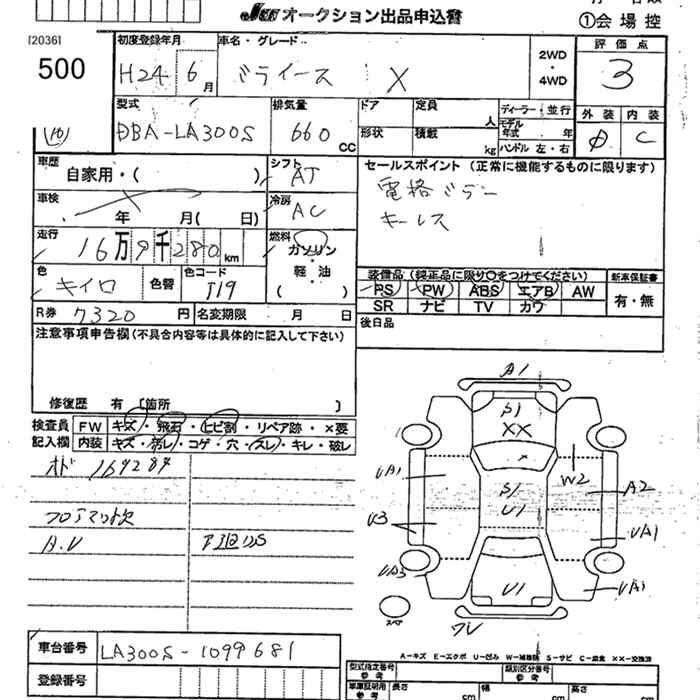 JU オークション出品申込書
①会場控
[2036]
500
初度登録年月
H24 6月
車名・グレード
ミライース X
2WD
・
4WD
評価点
3
型式
DBA-LA300S
排気量
660 CC
ドア
定員 人
形状
積載 kg
ディーラー・並行
モデル年式 年
ハンドル 左・右
外装 内装
C
車歴
自家用・( )
シフト
AT
セールスポイント (正常に機能するものに限ります)
電格ミラー
キーレス
車検
年 月( 日)
冷房
AC
走行
16万9千280km
燃料
ガソリン
軽・油
( )
色
キイロ
色替
色コード
T19
装備品(純正品に限り○をつけてください)
新車保証書
PS PW ABS エアB AW
SR ナビ TV カワ
有・無
R券 7320円
名変期限 月 日
後日品
注意事項申告欄(不具合内容等は具体的に記入して下さい)
修復歴 有 [箇所 ]
検査員記入欄
FW キズ・飛石・ヒビ割・リペア跡・×要
内装 キズ・汚レ・コゲ・穴・スレ・キレ・破レ
オド 169284
フロアマット欠
A.V
A1
S1
XX
×
UA1
W2
S1
U1
A2
U3
UA1
UA3
U1
UA1
スペア
車台番号
LA300S-1099681
登録番号
A-キズ E-エクボ U-凹み W-補修跡 S-サビ C-腐食 XX-交換済
型式指定番号
参考
類別区分番号
参考
車庫証明用
参考
長さ cm
幅 cm
高さ cm